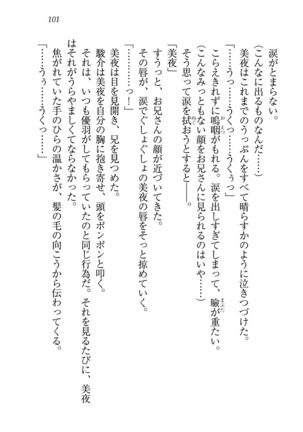 101
涙がとまらない。
（こんなに出るものなんだ……）
美夜はこれまでのうっぷんをすべて晴らすかのように泣きつづけた。
「……うっ……うく……うくぅっ」
こらえきれずに嗚咽がもれる。涙を出しすぎてしまって、瞼が重たい。
（こんなみっともない顔をお兄さんに見られるのはいや……）
そう思って涙を拭おうとすると――。
「美夜」
すうっと、お兄さんの顔が近づいてきた。
そのの唇が、涙でくしょくしょの美夜の唇をそっと掠めていく。
「……っ！」
美夜は目を見開き、兄を見つめた。
駿介は美夜を自分の胸に抱き寄せ、頭をポンポンと叩く。
それは、いつも優羽がしてもらっていたのと同じ行為だ。それを見るたびに、美夜
はそれがうらやましくてならなかった。
焦がれていた手のひらの温かさが、髪の毛の向こうから伝わってくる。
「……うぅ……うくっ……」